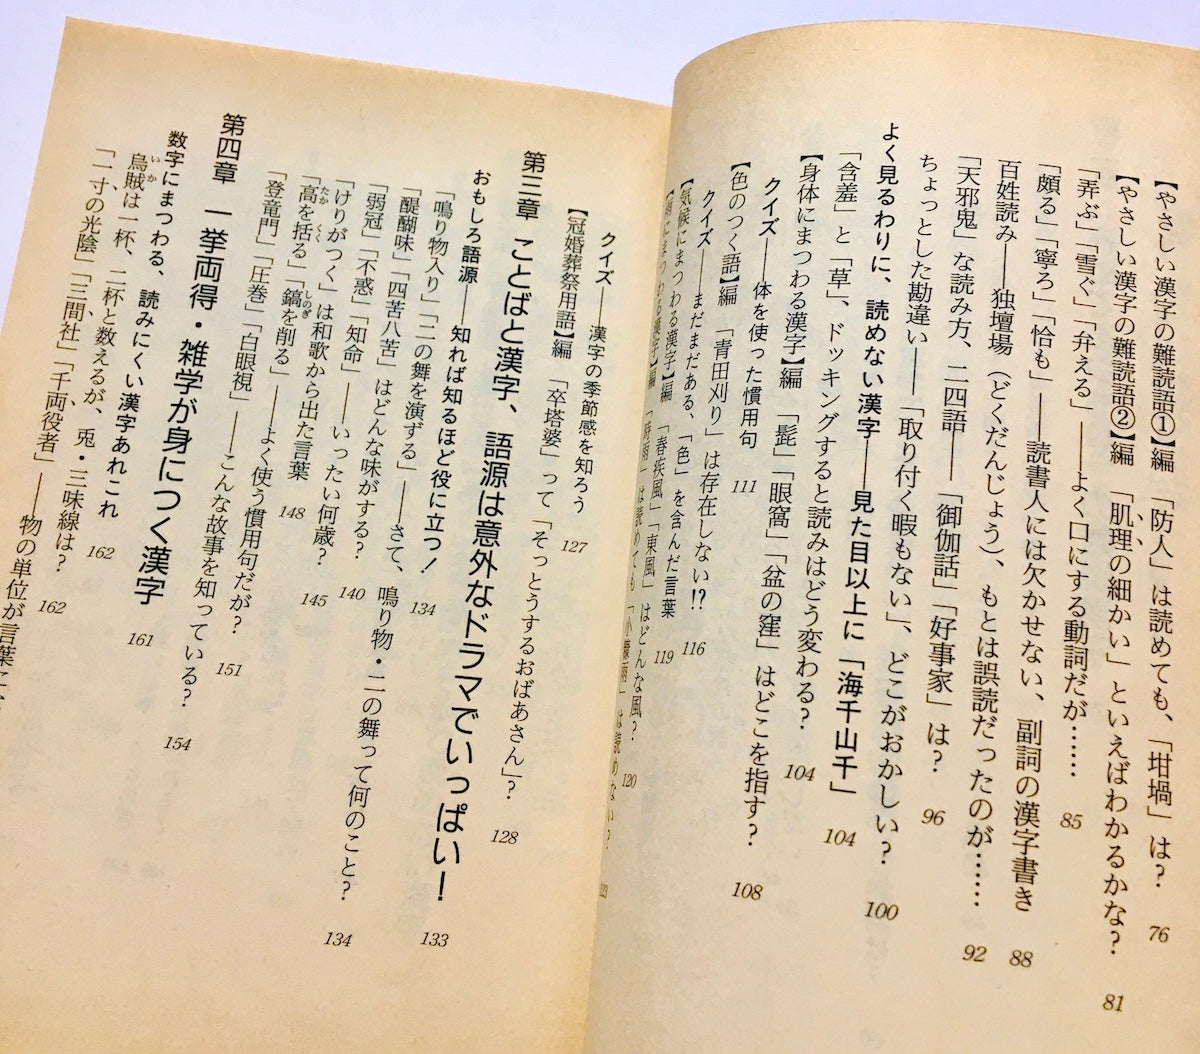 【やさしい漢字の難読語①】編　「防人」は読めても、「坩堝」は？　76
【やさしい漢字の難読語②】編　「肌理の細かい」といえばわかるかな？　81
「弄ぶ」「雪ぐ」「弁える」――よく口にする動詞だが……　85
「頗る」「寧ろ」「恰も」――読書人には欠かせない、副詞の漢字書き　88
百姓読み――独壇場（どくだんじょう）、もとは誤読だったのが……　92
「天邪鬼」な読み方、二四語――「御伽話」「好事家」は？　96
ちょっとした勘違い――「取り付く暇もない」、どこがおかしい？　100
よく見るわりに、読めない漢字――見た目以上に「海千山千」　104
「含羞」と「草」、ドッキングすると読みはどう変わる？　104
【身体にまつわる漢字】編　「髭」「眼窩」「盆の窪」はどこを指す？　108
クイズ――体を使った慣用句　111
【色のつく語】編　「青田刈り」は存在しない!?　116
クイズ――まだまだある、「色」を含んだ言葉　119
【気候にまつわる漢字】編　「春疾風」「東風」はどんな風？　120
【雨にまつわる漢字】編　「時雨」は読めても「小糠雨」は読めない？　123
クイズ――漢字の季節感を知ろう　127
【冠婚葬祭用語】編　「卒塔婆」って「そっとうするおばあさん」？　128
第三章　ことばと漢字、語源は意外なドラマでいっぱい！　133
おもしろ語源――知れば知るほど役に立つ！　134
「鳴り物入り」「二の舞を演ずる」――さて、鳴り物・二の舞って何のこと？　134
「醍醐味」「四苦八苦」はどんな味がする？　140
「弱冠」「不惑」「知命」――いったい何歳？　145
「けりがつく」は和歌から出た言葉　148
「高を括る」「鎬を削る」――よく使う慣用句だが？　151
「登竜門」「圧巻」「白眼視」――こんな故事を知っている？　154
第四章　一挙両得・雑学が身につく漢字　161
数字にまつわる、読みにくい漢字あれこれ　162
烏賊は一杯、二杯と数えるが、兎・三味線は？　162
「一寸の光陰」「三間社」「千両役者」――物の単位が言葉に